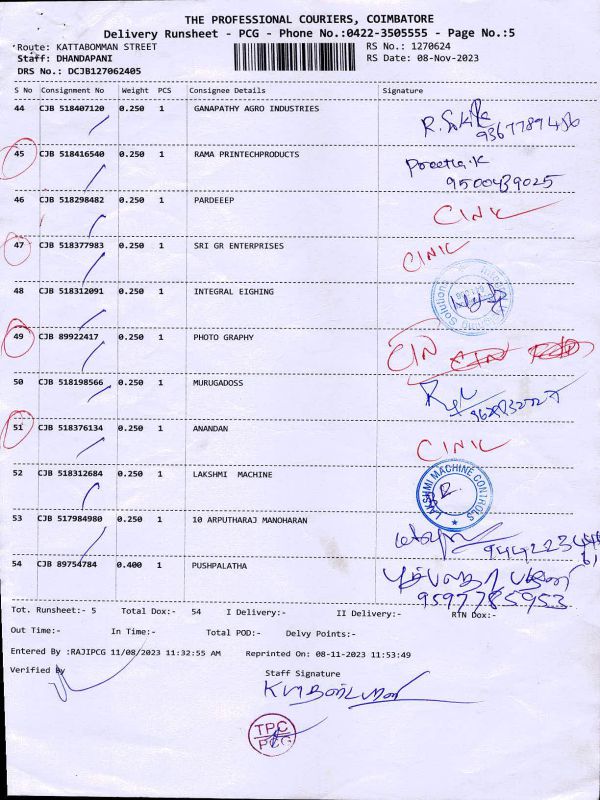 THE PROFESSIONAL COURIERS, COIMBATORE
Delivery Runsheet - PCG - Phone No.:0422-3505555 - Page No.:5
Route: KATTABOMMAN STREET RS No.: 1270624
Staff: DHANDAPANI RS Date: 08-Nov-2023
DRS No.: DCJB127062405
S No Consignment No Weight PCS Consignee Details Signature
44 CJB 518407120 0.250 1 GANAPATHY AGRO INDUSTRIES
9367789456
45 CJB 518416540 0.250 1 RAMA PRINTECHPRODUCTS Preetha.K
9500439025
46 CJB 518298482 0.250 1 PARDEEEP
47 CJB 518377983 0.250 1 SRI GR ENTERPRISES
48 CJB 518312091 0.250 1 INTEGRAL EIGHING
49 CJB 89922417 0.250 1 PHOTO GRAPHY
50 CJB 518198566 0.250 1 MURUGADOSS
51 CJB 518376134 0.250 1 ANANDAN
52 CJB 518312684 0.250 1 LAKSHMI MACHINE
LAKSHMI MACHINE CONTROLS
53 CJB 517984980 0.250 1 10 ARPUTHARAJ MANOHARAN
54 CJB 89754784 0.400 1 PUSHPALATHA
9597785953
Tot. Runsheet:- 5 Total Dox:- 54 I Delivery:- II Delivery:- RTN Dox:-
Out Time:- In Time:- Total POD:- Delvy Points:-
Entered By :RAJIPCG 11/08/2023 11:32:55 AM Reprinted On: 08-11-2023 11:53:49
Verified By Staff Signature
TPC
PCG